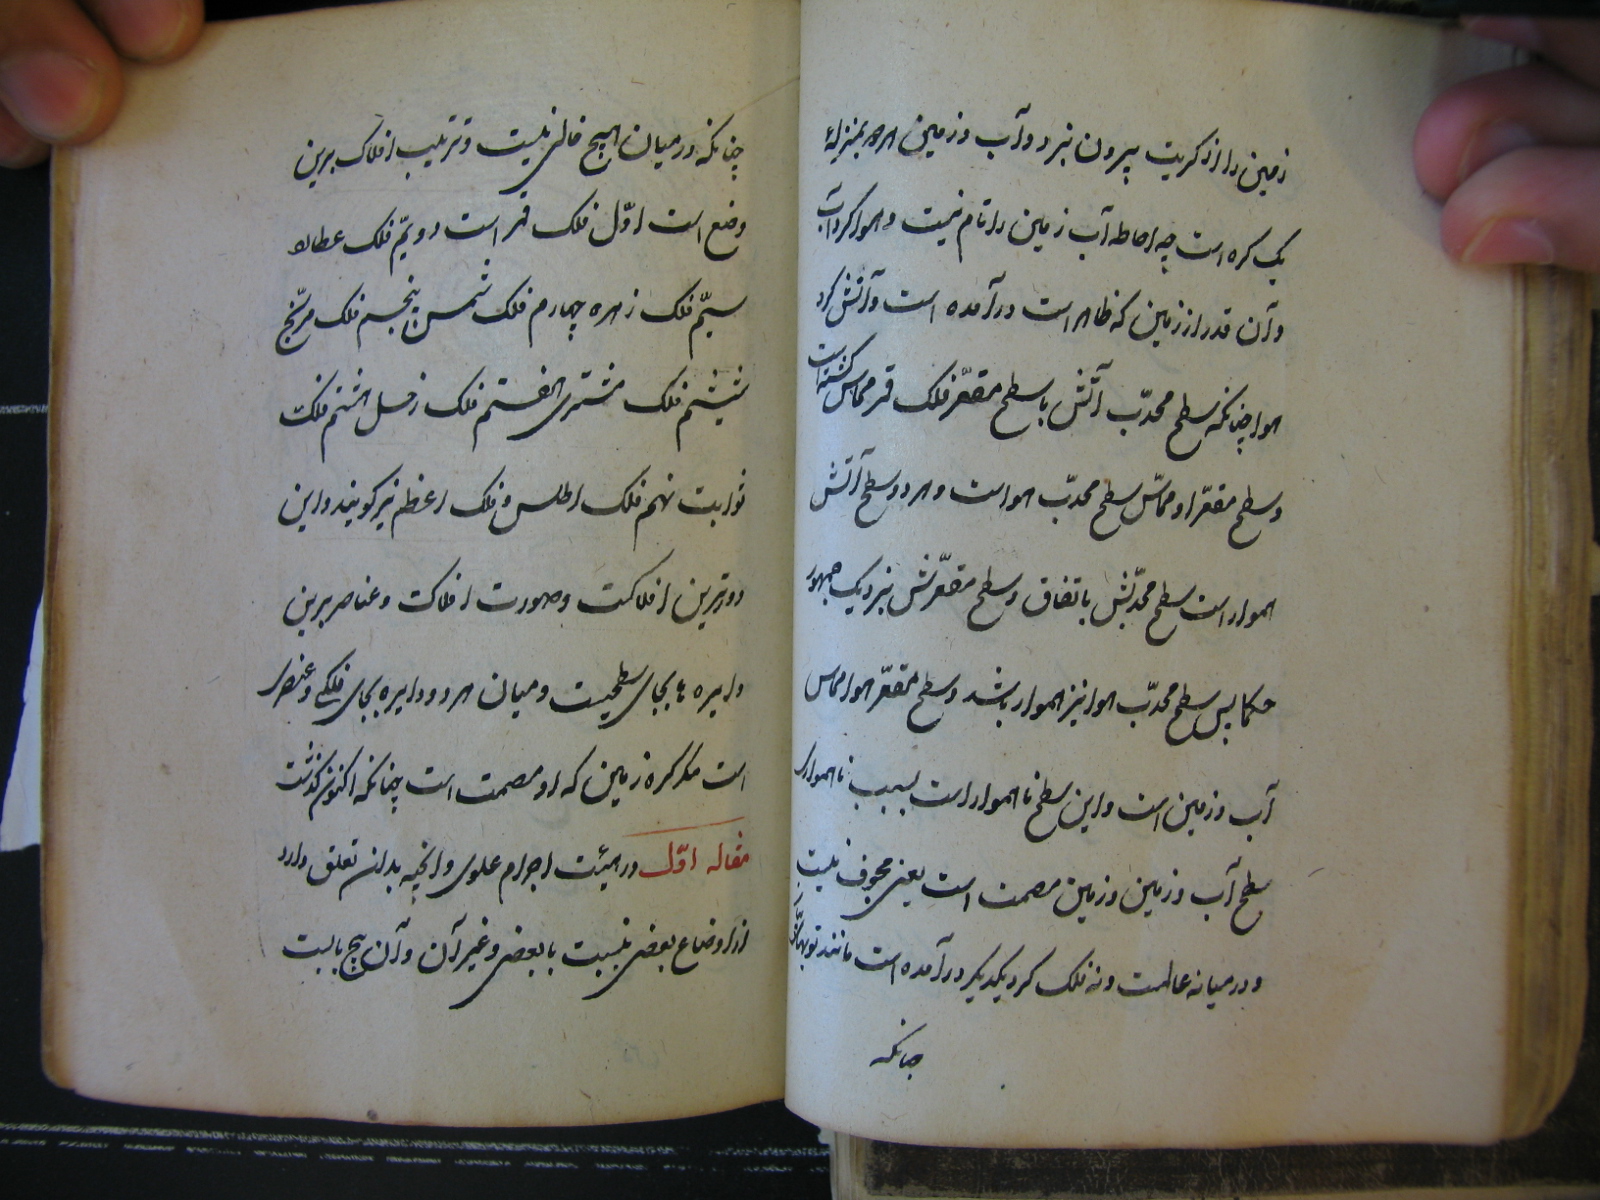 زمین را از کریت بیرون نبرد و آب و زمین هر دو بمنزلهٔ
یک کره است چه احاطه آب زمین را تام نیست و هوا کرد آب
و آن قدر از زمین که ظاهر است در آمده است و آتش کرد
هوا چنانکه سطح محدّب آتش با سطح مقعّر فلک قمر مماس کشته است
و سطح مقعّر او مماسّ سطح محدّب هوا است و هر دو سطح آتش
هموار است سطح محدّبش باتفاق و سطح مقعّرش بنزدیک جمهور
حکما پس سطح محدّب هوا نیز هموار باشد و سطح مقعّر هوا مماس
آب و زمین است و این سطح ناهموار است بسبب ناهمواری
سطح آب و زمین و زمین مصمت است یعنی مجوف نیست
و در میانه عالمست و نه فلک کرد یکدیگر در آمده است مانند تویهای پیاز
چنانکه
چنانکه در میان هیچ خالی نیست و ترتیب افلاک برین
وضع است اوّل فلک قمر است دویّم فلک عطارد
سیّم فلک زهره چهارم فلک شمس پنجم فلک مرّیخ
ششم فلک مشتری هفتم فلک زحل هشتم فلک
ثوابت نهم فلک اطلس و فلک اعظم نیز کویند و این
دورترین افلاکست و صورت افلاک و عناصر برین
دایره ها بجای سطحیست و میان هر دو دایره بجای فلکی و عنصری
است مکر کره زمین که او مصمت است چنانکه اکنون کذشت
مقاله اوّل در هیئت اجرام علوی و انچه بدان تعلق دارد
از اوضاع بعضی بنسبت با بعضی و غیر آن و آن پنج بابست